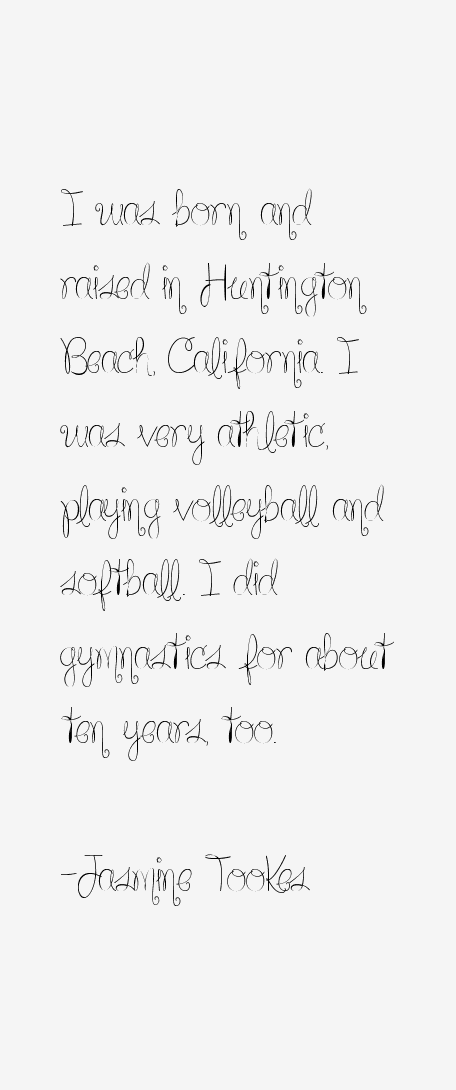 I was born and
raised in Huntington
Beach, California. I
was very athletic,
playing volleyball and
softball. I did
gymnastics for about
ten years, too.
-Jasmine Tookes